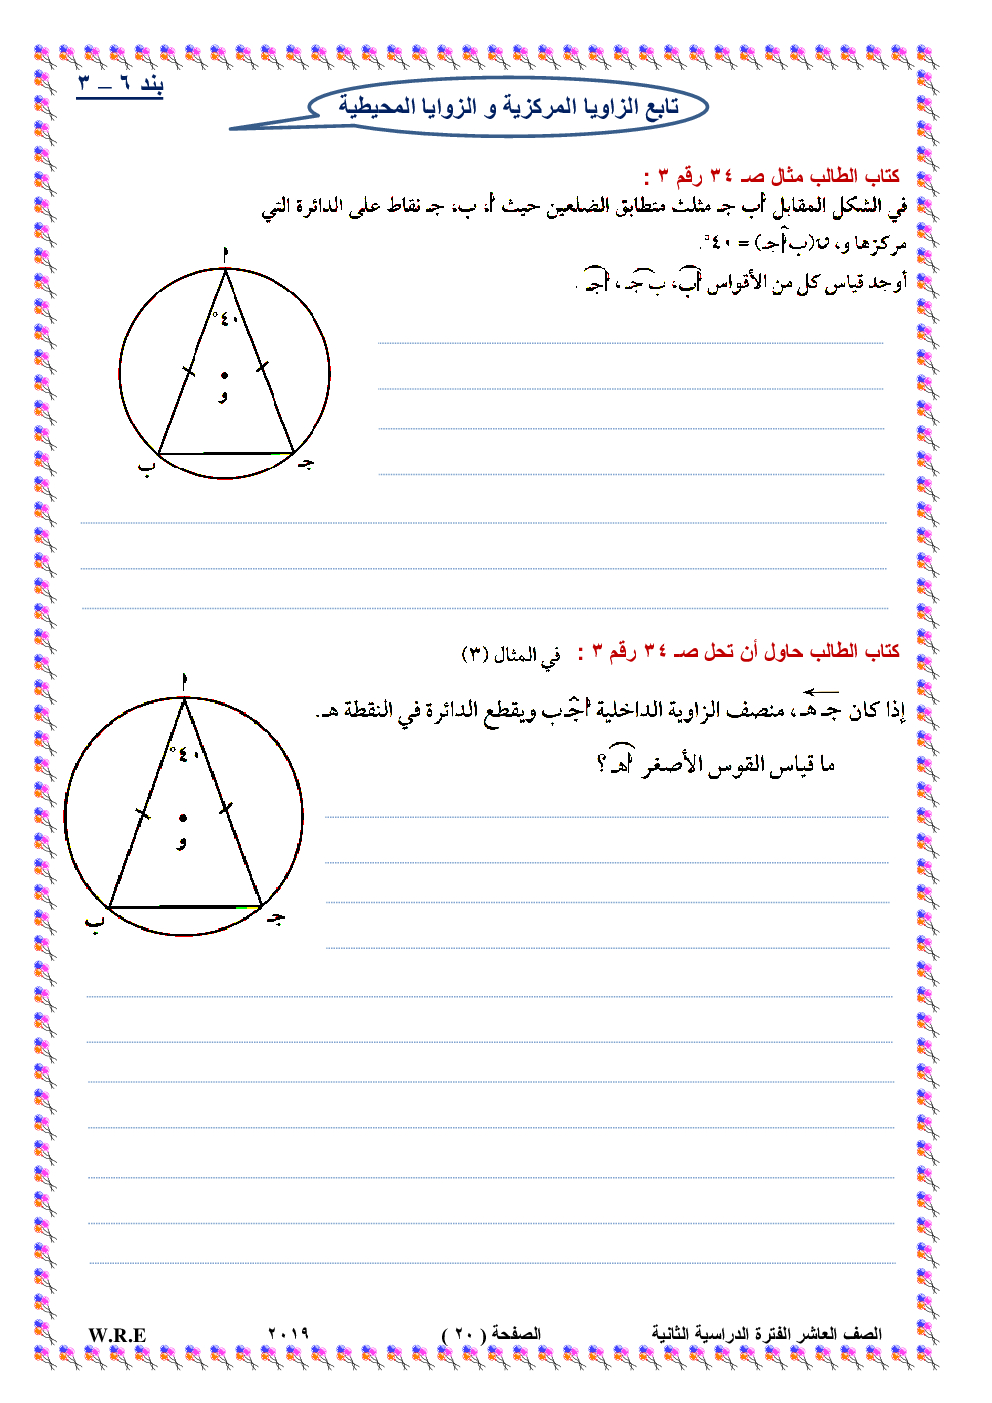 بند ٦ – ٣
تابع الزاويا المركزية و الزوايا المحيطية
كتاب الطالب مثال صـ ٣٤ رقم ٣ :
في الشكل المقابل أ ب جـ مثلث متطابق الضلعين حيث أ، ب، جـ نقاط على الدائرة التي
مركزها و، ن(ب أ̂ جـ) = ٤٠°.
أوجد قياس كل من الأقواس أب، ب جـ، أجـ .
أ
٤٠°
و
ب
جـ
كتاب الطالب حاول أن تحل صـ ٣٤ رقم ٣ : في المثال (٣)
إذا كان جـ هـ، منصف الزاوية الداخلية أ جـ̂ ب ويقطع الدائرة في النقطة هـ.
ما قياس القوس الأصغر أهـ ؟
أ
٤٠°
و
ب
جـ
الصف العاشر الفترة الدراسية الثانية الصفحة ( ٢٠ ) ٢٠١٩ W.R.E